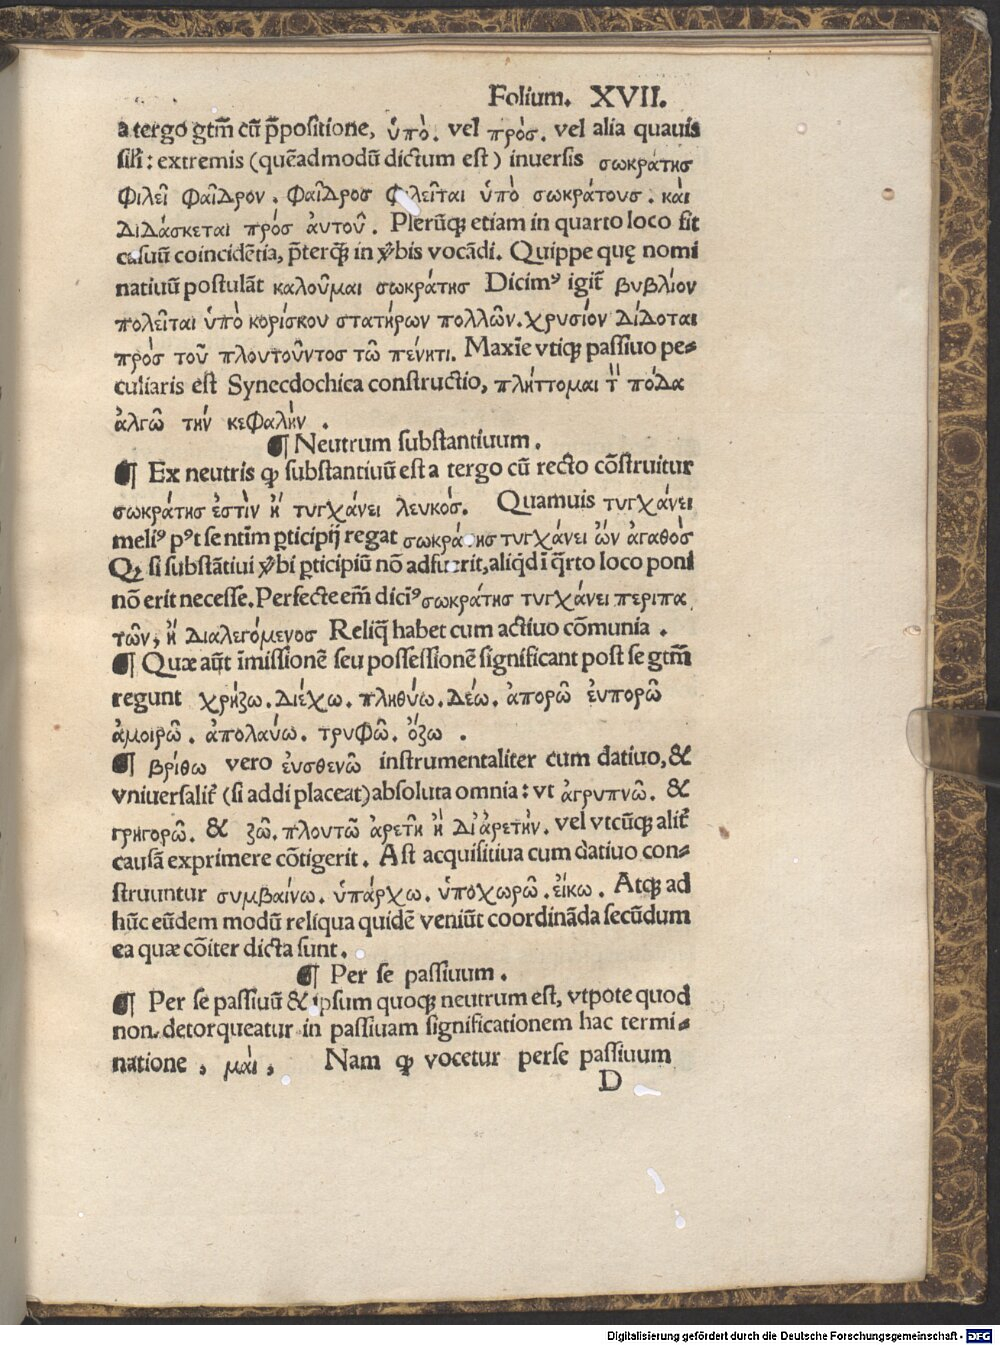 Folium. XVII.
a tergo gtm̃ cũ p̃positione, ὑπὸ. vel πρὸς. vel alia quauis
sili: extremis (quẽadmodũ dictum est) inuersis σωκράτησ
φιλεῖ φαῖδρον. φαῖδροσ φιλεῖται ὑπὸ σωκράτουσ. καὶ
διδάσκεται πρὸσ ἀυτοῦ. Plerũqꝫ etiam in quarto loco fit
casuũ coincidẽtia, p̃terqꝫ̃ in v̉bis vocãdi. Quippe quę nomi
natiuũ postulãt καλοῦμαι σωκράτησ Dicimꝰ igit̃ βυβλίον
πολεῖται ὑπὸ κορίσκου στατήρων πολλῶν. χρυσίον δίδοται
πρὸσ τοῦ πλουτοῦντοσ τῶ πένητι. Maxĩe vtiqꝫ passiuo pe⸗
culiaris est Synecdochica constructio, πλήττομαι τ̀ πόδα
ἀλγῶ τὴν κεφαλὴν.
¶ Neutrum substantiuum.
¶ Ex neutris ꝙ substantiuũ est a tergo cũ recto cõstruitur
σωκράτησ ἐστὶν ἢ τυγχάνει λευκόσ. Quamuis τυγχάνει
meliꝰ pꝰt se ntĩm ꝑticipij regat σωκράτησ τυγχάνει ὢν ἀγαθὸσ
Qꝫ si substãtiui v̉bi ꝑticipiũ nõ adfuerit, aliq̇d ĩ q̃rto loco poni
nõ erit necesse. Perfecte em̃ diciꝰ σωκράτησ τυγχάνει περιπα
τῶν, ἢ διαλεγόμενοσ Reliq̃ habet cum actiuo cõmunia.
¶ Quæ aũt ĩmissionẽ seu possessionẽ significant post se gtm̃
regunt χρήζω. διέχω. πληθύω. δέω. ἀπορῶ ἐυπορῶ
ἀμοιρῶ. ἀπολαύω. τρυφῶ. ὄζω.
¶ βρίθω vero ἐυσθενῶ instrumentaliter cum datiuo, &
vniuersalit̃ (si addi placeat) absoluta omnia: vt ἀγρυπνῶ. &
γρηγορῶ. & ζῶ. πλουτῶ ἀρετῆ ἢ δι᾽ἀρετὴν. vel vtcũqꝫ alit̃
causã exprimere cõtigerit. Ast acquisitiua cum datiuo con⸗
struuntur συμβαίνω. ὑπάρχω. ὑποχωρῶ. ἔικω. Atqꝫ ad
hũc eũdem modũ reliqua quidẽ veniũt coordinãda secũdum
ea quæ cõiter dicta sunt.
¶ Per se passiuum.
¶ Per se passiuũ & ipsum quoqꝫ neutrum est, vtpote quod
non detorqueatur in passiuam significationem hac termi⸗
natione, μαὶ, Nam ꝙ vocetur perse passiuum
D
Digitalisierung gefördert durch die Deutsche Forschungsgemeinschaft - DFG